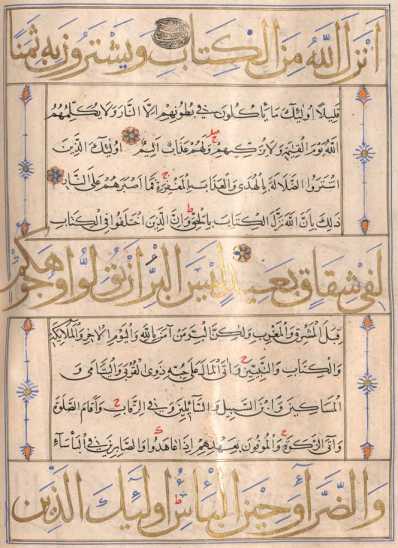 انزل الله من الكتاب ويشترون به ثمنا
قليلا اولئك ما ياكلون في بطونهم الا النار ولا يكلمهم
الله يوم القيمة ولا يزكيهم ولهم عذاب اليم اولئك الذين
اشتروا الضلالة بالهدى والعذاب بالمغفرة فما اصبرهم على النار
ذلك بان الله نزل الكتاب بالحق وان الذين اختلفوا في الكتاب
لفي شقاق بعيد ليس البر ان تولوا وجوهكم
قبل المشرق والمغرب ولكن البر من آمن بالله واليوم الآخر والملائكة
والكتاب والنبيين وآتى المال على حبه ذوي القربى واليتامى و
المساكين وابن السبيل والسائلين وفي الرقاب واقام الصلوة
وآتى الزكوة والموفون بعهدهم اذا عاهدوا والصابرين في البأساء
والضراء وحين البأس اولئك الذين